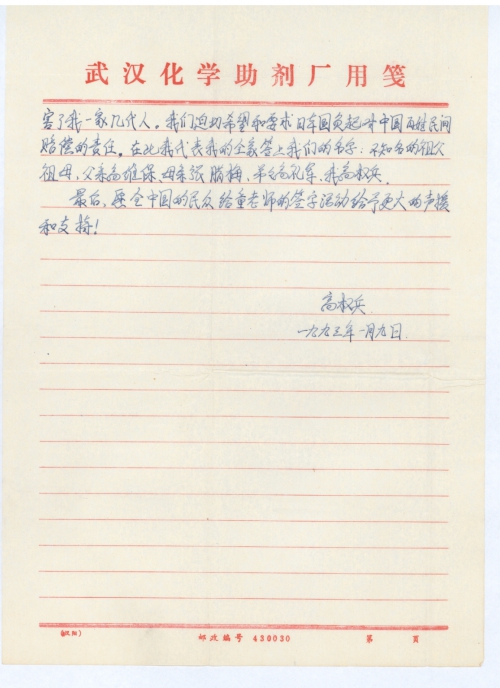 武汉化学助剂厂用笺
害了我一家几代人。我们迫切希望和要求日本国负起对中国百姓民间
赔偿的责任。在此我代表我的全家签上我们的名字：不知名的祖父
祖母，父亲高维保，母亲张腊梅，高礼军，我高权兵。
最后，愿全中国的民众给童老师的签字活动给予更大的声援
和支持！
高权兵
一九九三年一月九日
(武汉)
邮政编号 430030
第 页